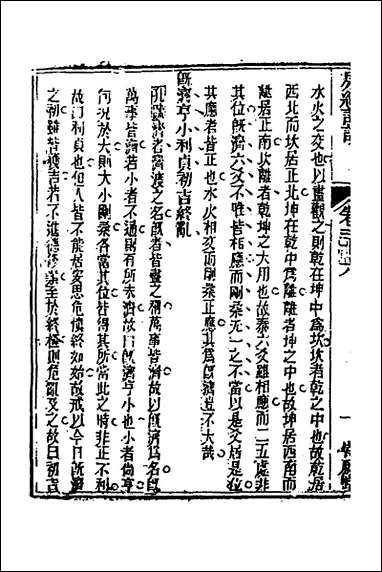 水火之交也以畫觀之則乾在坤中為坎坎者乾之中也故乾居
西北而坎居正北坤在乾中為離離者坤之中也故坤居西南而
離居正南坎離者乾坤之大用也故泰六爻雖相應而二五處非
其位既濟六爻不唯皆相應而剛柔无一之不當以是爻居是位
其應者皆正也水火相交而剛柔正應其為既濟豈不大哉
既濟亨小利貞初吉終亂
孔疏濟者濟渡之名既者皆盡之稱萬事皆濟故以既濟為名既
萬事皆濟若小者不通則有所未濟故曰既濟亨小也小者尚亨
何況於大則大小剛柔各當其位皆得其所當此之時非正不利
故曰利貞也但人皆不能居安思危慎終如始故戒以今日既濟
之初雖皆獲吉若不進德修業至於終極則危亂及之故曰初吉